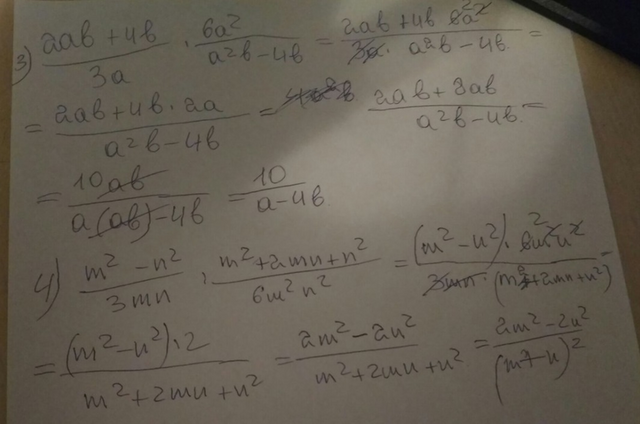 3) (2ab+4b)/3a · 6a²/(a²b-4b) = (2ab+4b 6a²)/(3a · a²b-4b) =
= (2ab+4b·2a)/(a²b-4b) = (2ab+8ab)/(a²b-4b) =
= 10ab/(a(ab)-4b) = 10/(a-4b)
4) (m²-n²)/3mn : (m²+2mn+n²)/6m²n² = ((m²-n²)·6m²n²)/(3mn·(m²+2mn+n²)) =
= ((m²-n²)·2)/(m²+2mn+n²) = (2m²-2n²)/(m²+2mn+n²) = (2m²-2n²)/(m+n)²